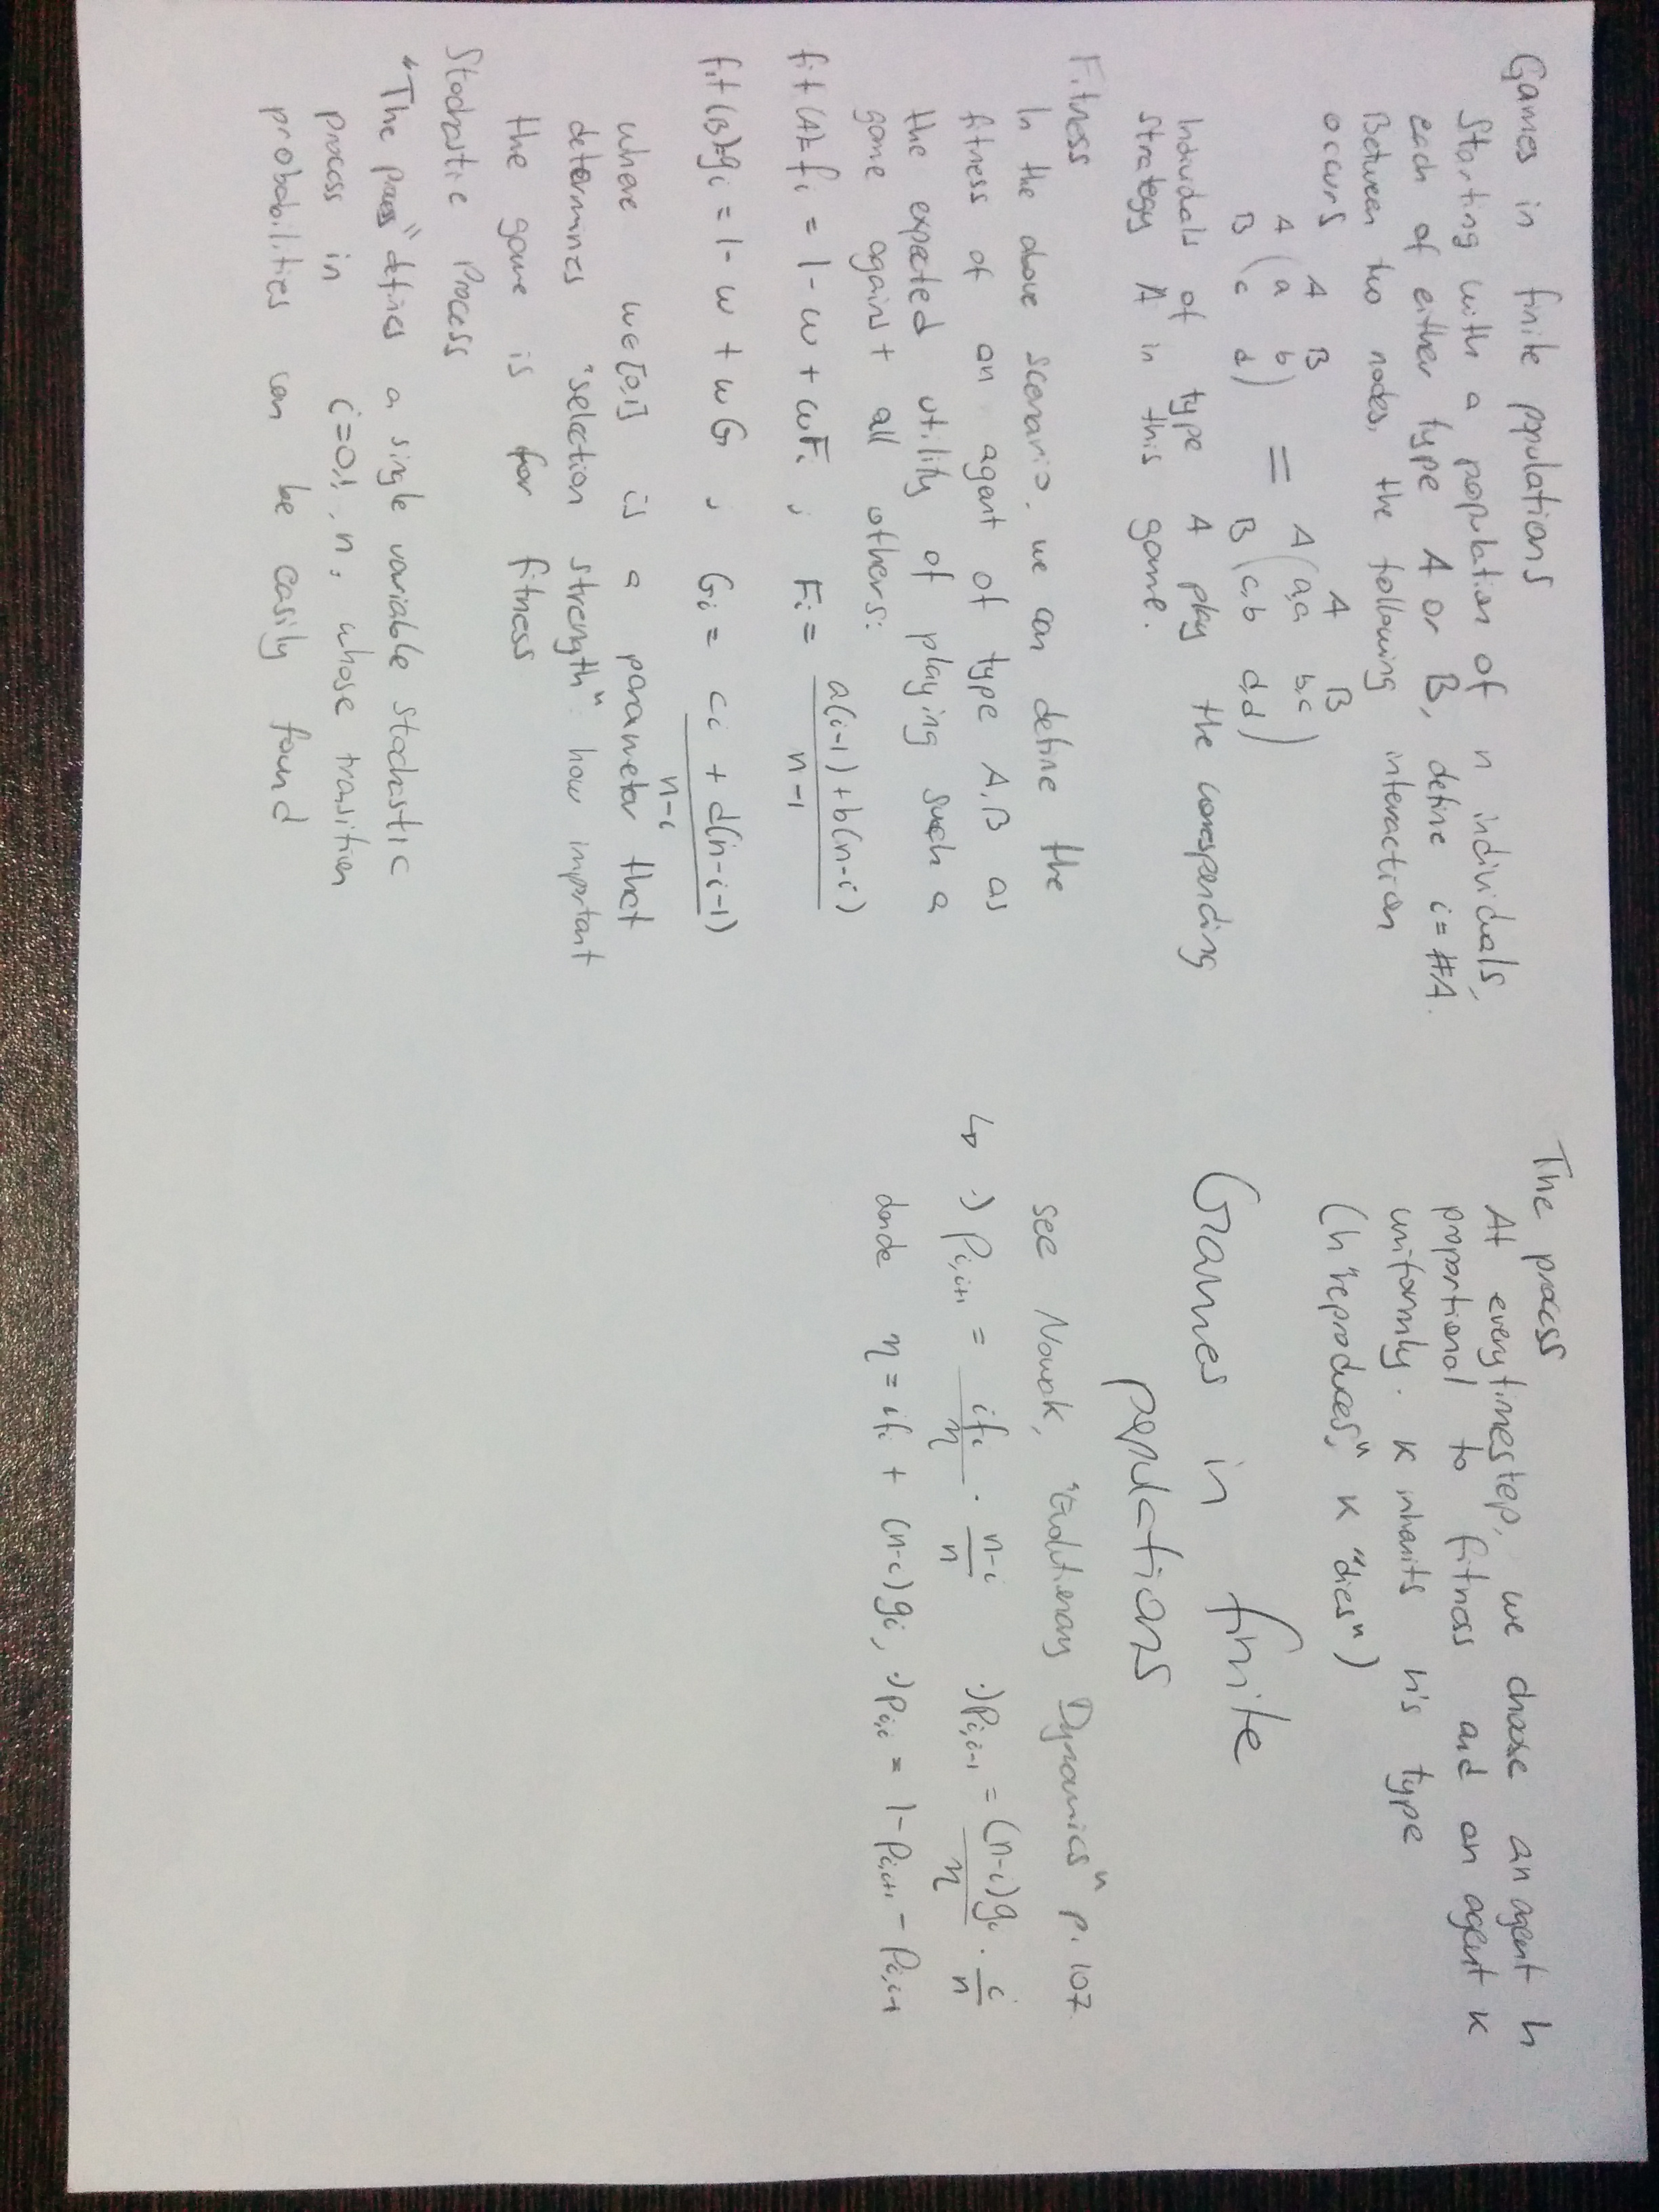 Games in finite populations
Starting with a population of n individuals,
each of either type A or B, define i = #A.
Between two nodes, the following interaction
occurs
A B
A ( a b )
B ( c d )
=
A B
A ( a,a b,c )
B ( c,b d,d )
Individuals of type A play the corresponding
strategy A in this game.
Fitness
In the above scenario, we can define the
fitness of an agent of type A, B as
the expected utility of playing such a
game against all others:
fit(A)=fi = 1 - w + wFi ; Fi = a(i-1)+b(n-i) / n-1
fit(B)=gi = 1 - w + wG ; Gi = ci + d(n-i-1) / n-i
where w∈[0,1] is a parameter that
determines "selection strength": how important
the game is for fitness
Stochastic Process
"The process" defines a single variable stochastic
process in i=0,1,,n, whose trasition
probabilities can be easily found
The process
At every timestep, we choose an agent h
proportional to fitness and an agent k
uniformly. k inherits h's type
(h "reproduces", k "dies")
Games in finite
populations
see Nowak, "Evolutionary Dynamics" p. 107
↳ :) Pi,i+1 = ifi/η · n-i/n :) Pi,i-1 = (n-i)gi/η · i/n
donde η = ifi + (n-i)gi, :) Pi,i = 1 - Pi,i+1 - Pi,i-1